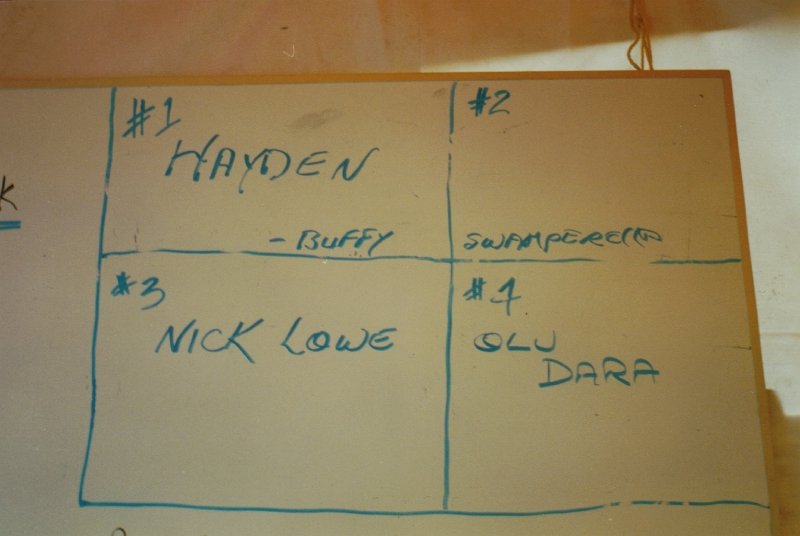 K
#1
HAYDEN
- BUFFY
#2
#3
NICK LOWE
#4
OLU
DARA